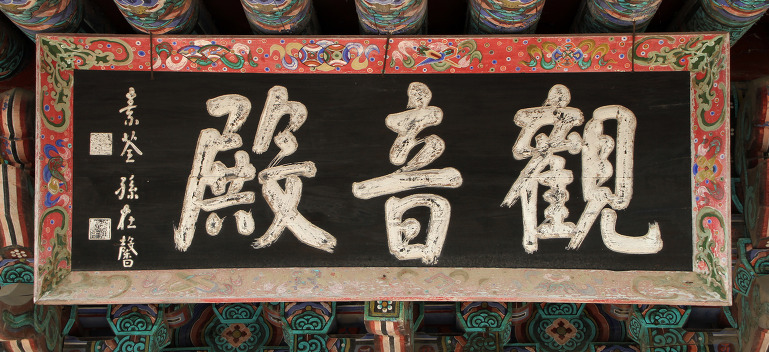 觀音殿
素荃 孫在馨